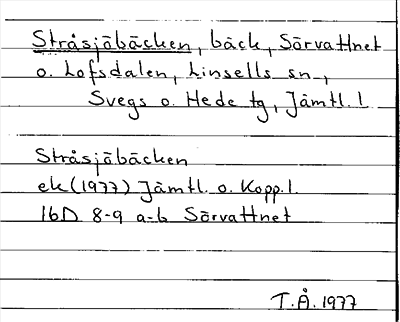 Stråsjöbäcken, bäck, Sörvattnet
o. Lofsdalen, Linsells sn,
Svegs o. Hede tg, Jämtl. l
Stråsjöbäcken
ek (1977) Jämtl. o. Kopp. l.
16D 8-9 a-b Sörvattnet
T.Å. 1977